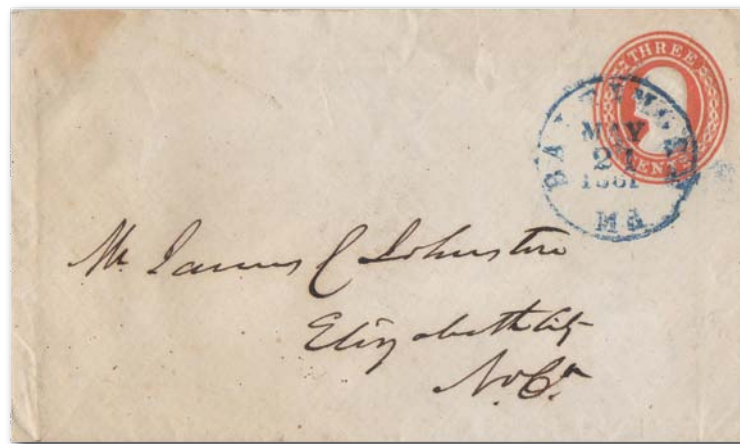 THREE
CENTS
BALTIMORE
MAY
21
1861
Md
Mr. James C Johnston
Elizabeth City
N. Ca